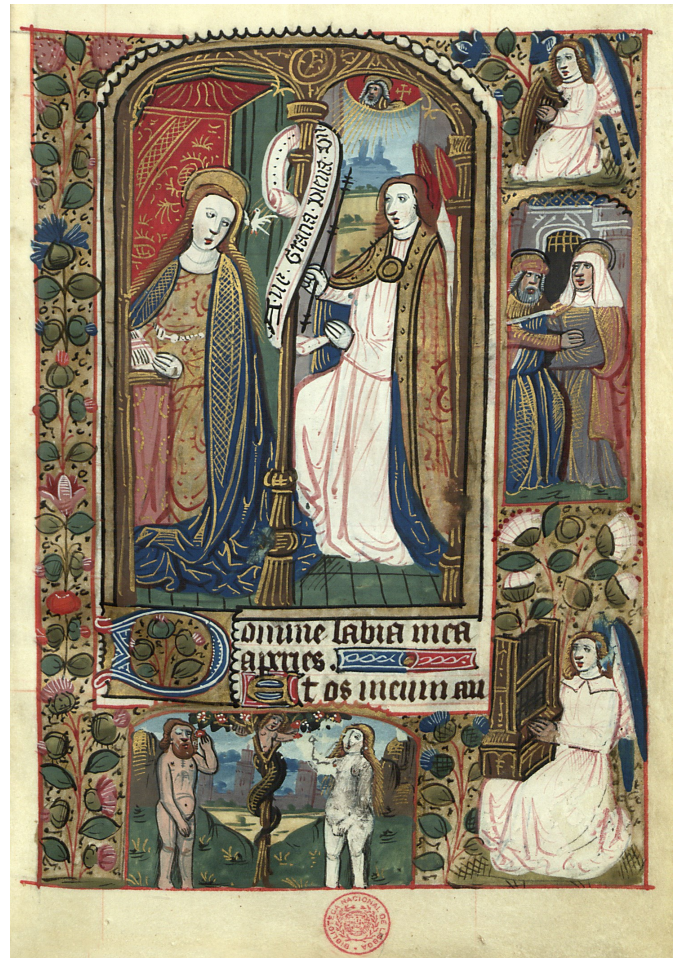 Aue. Gratia. plena.
Domine labia mea
apries.
Et os meum an
BIBLIOTECA NACIONAL DE LISBOA